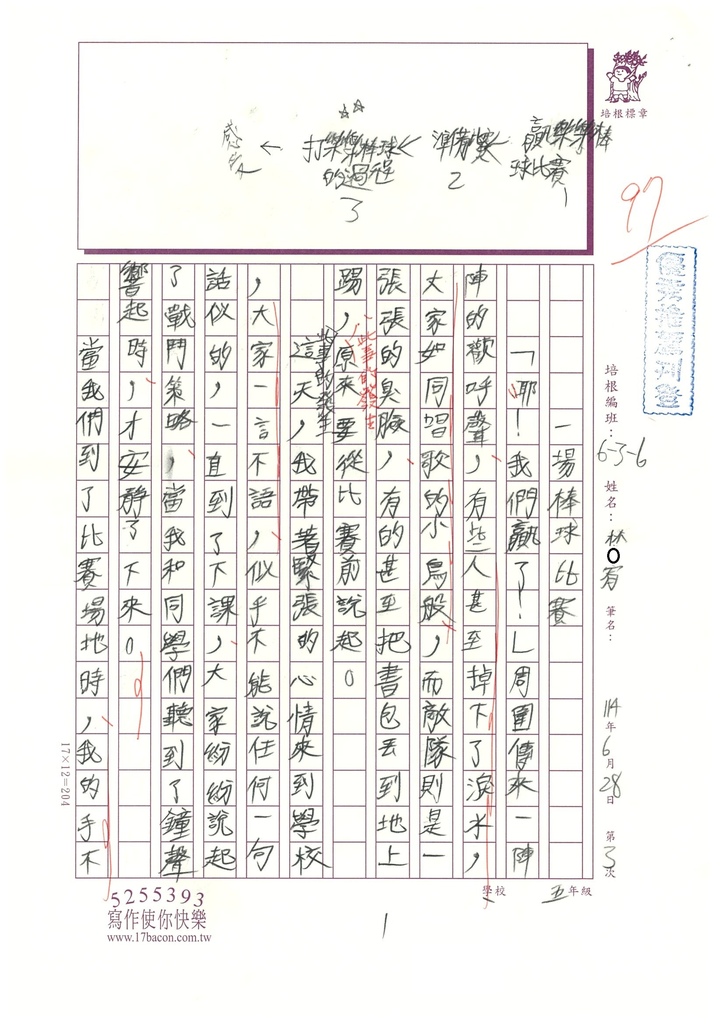 培根標章
贏樂樂棒球比賽
1
準備比賽
2
打樂樂棒球的過程
3
感文
97
優秀推薦刊登
培根編班:6-3-6 姓名:林○宥 筆名: 114年6月28日 第3次
學校 五年級
一場棒球比賽
「耶!我們贏了!」周圍傳來一陣
陣的歡呼聲,有些人甚至掉下了淚水,
大家如同唱歌的小鳥般,而敵隊則是一
張張的臭臉,有的甚至把書包丟到地上
踢,原來要從比賽前說起。
此事的發生
此事的發生
這天,我帶著緊張的心情來到學校
,大家一言不語,似乎不能說任何一句
話似的,一直到了下課,大家紛紛說起
了戰鬥策略,當我和同學們聽到了鐘聲
響起時,才安靜了下來。
當我們到了比賽場地時,我的手不
17×12=204
5255393
寫作使你快樂
www.17bacon.com.tw
1